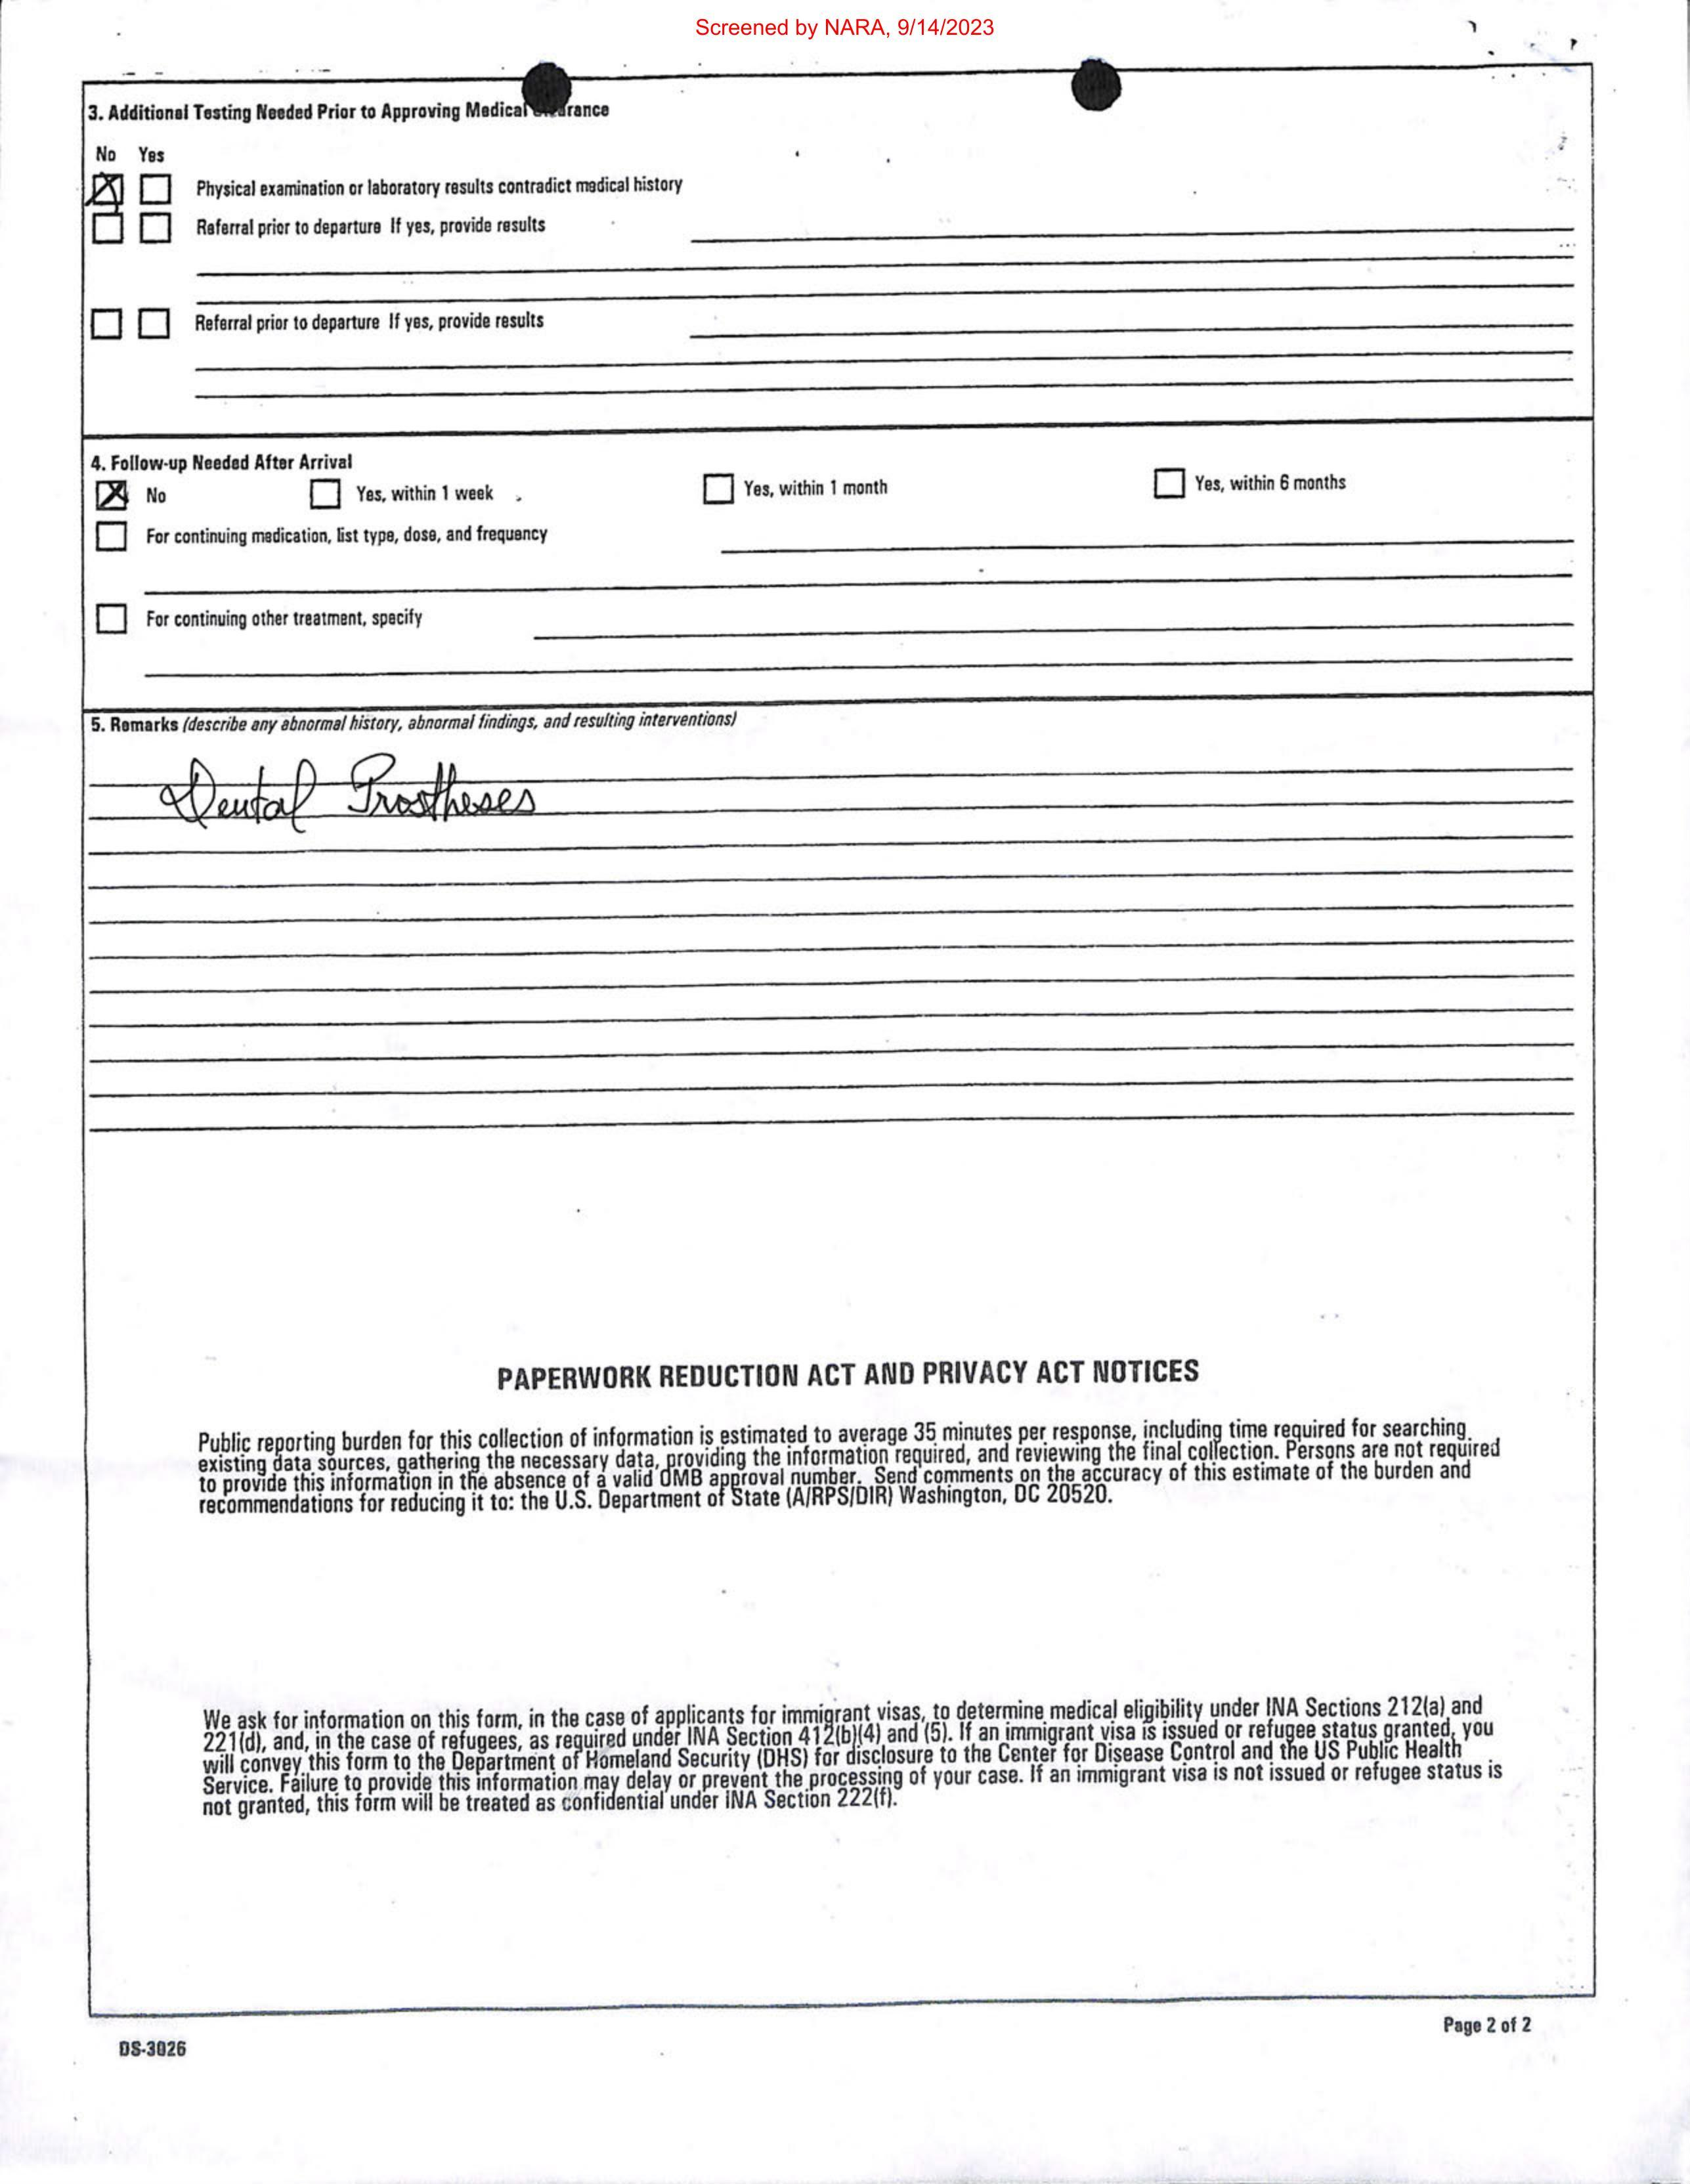 Screened by NARA, 9/14/2023
3. Additional Testing Needed Prior to Approving Medical
No Yes
Physical examination or laboratory results contradict medical history
Referral prior to departure If yes, provide results
Referral prior to departure If yes, provide results
4. Follow-up Needed After Arrival
No Yes, within 1 week Yes, within 1 month Yes, within 6 months
For continuing medication, list type, dose, and frequency
For continuing other treatment, specify
5. Remarks (describe any abnormal history, abnormal findings, and resulting interventions)
Dental Prostheses
PAPERWORK REDUCTION ACT AND PRIVACY ACT NOTICES
Public reporting burden for this collection of information is estimated to average 35 minutes per response, including time required for searching
existing data sources, gathering the necessary data, providing the information required, and reviewing the final collection. Persons are not required
to provide this information in the absence of a valid OMB approval number. Send comments on the accuracy of this estimate of the burden and
recommendations for reducing it to: the U.S. Department of State (A/RPS/DIR) Washington, DC 20520.
We ask for information on this form, in the case of applicants for immigrant visas, to determine medical eligibility under INA Sections 212(a) and
221(d), and, in the case of refugees, as required under INA Section 412(b)(4) and (5). If an immigrant visa is issued or refugee status granted, you
will convey this form to the Department of Homeland Security (DHS) for disclosure to the Center for Disease Control and the US Public Health
Service. Failure to provide this information may delay or prevent the processing of your case. If an immigrant visa is not issued or refugee status is
not granted, this form will be treated as confidential under INA Section 222(f).
Page 2 of 2
DS-3026